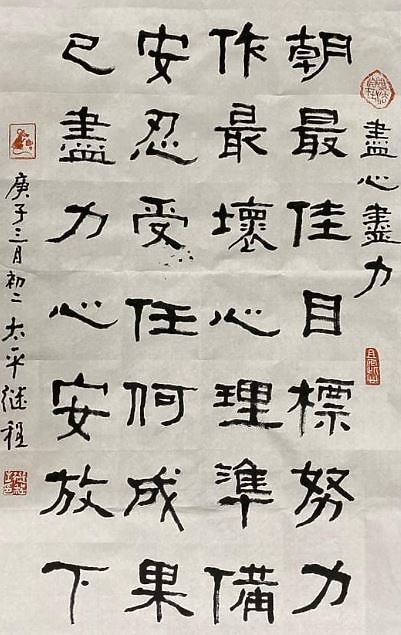 盡心盡力
朝最佳目標努力
作最壞心理準備
安忍受任何成果
已盡力心安放下
庚子三月初二 太平继程